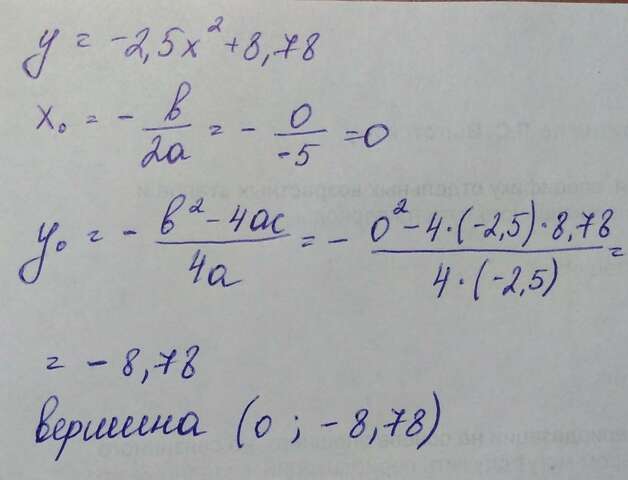 y = -2,5x² + 8,78
x₀ = - в/2a = - 0/-5 = 0
y₀ = - в² - 4ac/4a = - 0² - 4·(-2,5)·8,78/4·(-2,5) =
= - 8,78
вершина (0 ; - 8,78)